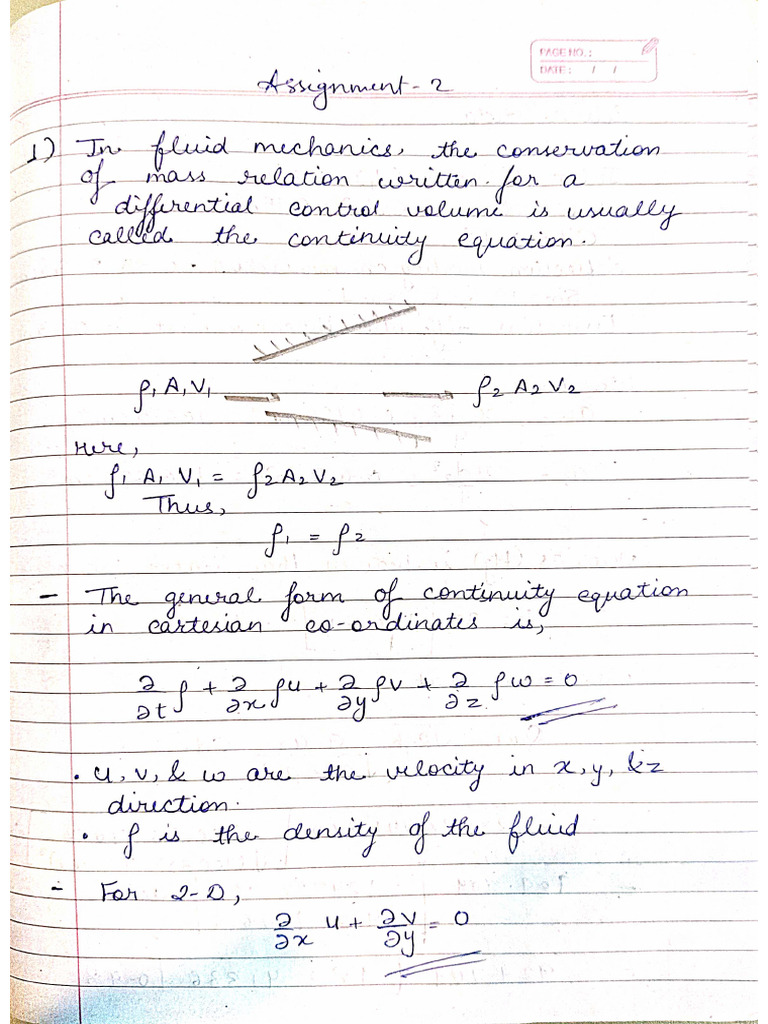 PAGE NO.:
DATE: / /
Assignment-2
1) In fluid mechanics, the conservation
of mass relation written for a
differential control volume is usually
called the continuity equation.
ρ1 A1 V1 ρ2 A2 V2
Here,
ρ1 A1 V1 = ρ2 A2 V2
Thus,
ρ1 = ρ2
- The general form of continuity equation
in cartesian co-ordinates is,
∂/∂t ρ + ∂/∂x ρu + ∂/∂y ρv + ∂/∂z ρw = 0
• u, v, & w are the velocity in x, y, & z
direction.
• ρ is the density of the fluid
- For 2-D,
∂/∂x u + ∂v/∂y = 0